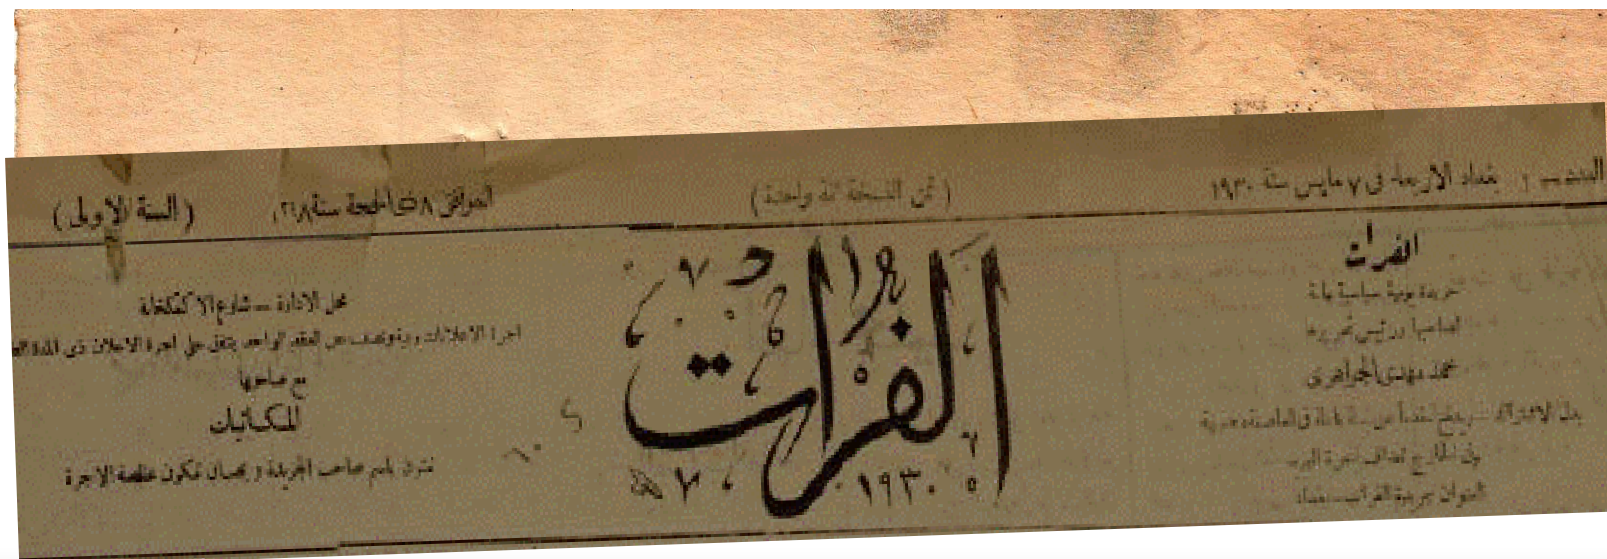 العدد بغداد الاربعاء في ٧ مايس سنة ١٩٣٠
( ثمن النسخة انة واحدة )
الموافق ٨ ذي الحجة سنة
( السنة الاولى )
الفرات
جريدة يومية سياسية عامة
لصاحبها ورئيس تحريرها
محمد مهدي الجواهري
بدل الاشتراك يدفع مقدماً عن سنة كاملة في العاصمة
وفي الخارج تضاف اجرة البريد
العنوان جريدة الفرات ــ بغداد
الفرات
١٩٣٠
محل الادارة ــ شارع الاكمكخانة
اجرة الاعلانات
يتفق على اجرة الاعلان ذي المدة
مع صاحبها
المكاتبات
تعنون باسم صاحب الجريدة ويجب ان تكون خالصة الاجرة